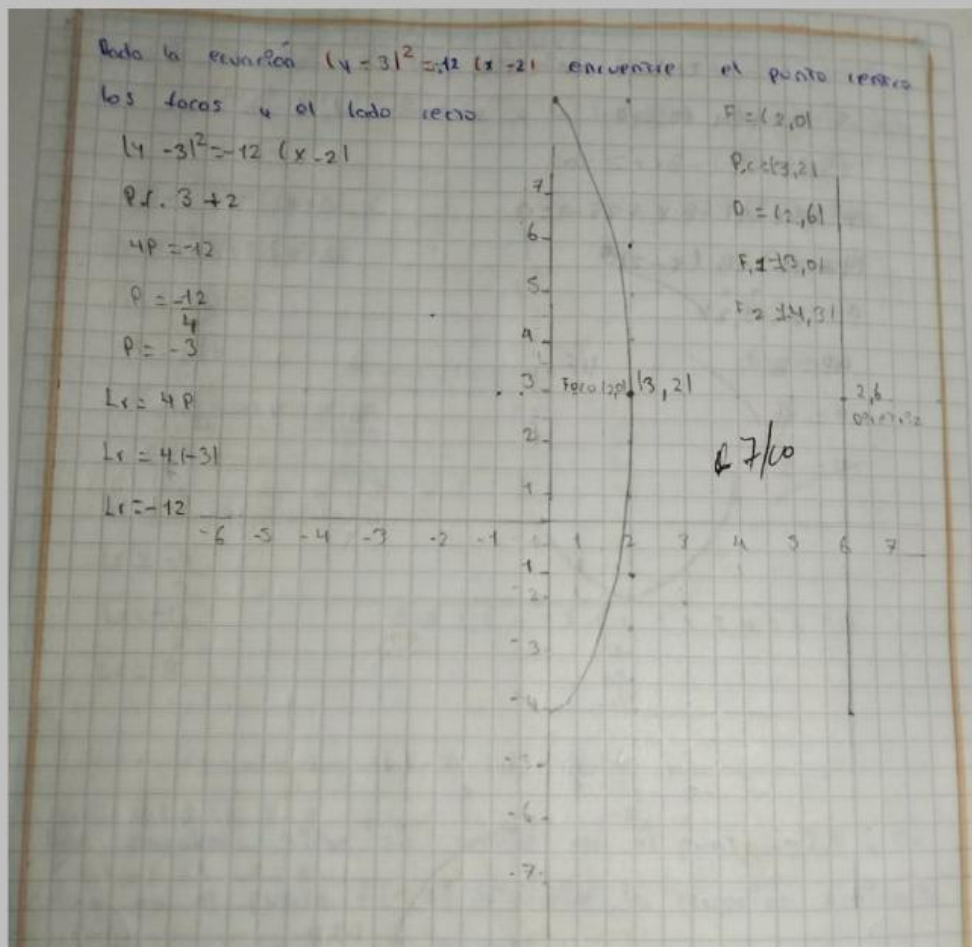 Dado la ecuación (y - 3)² = -12 (x - 2) encuentre el punto
los focos y el lado recto
(y - 3)² = -12 (x - 2)
3 + 2
4P = -12
P = -12
4
P = -3
Lr = 4P
Lr = 4(-3)
Lr = -12
F = (2,0)
(3,2)
D = (2,6)
7
6
5
4
3
Foco (3,2)
2
1
2,6
7/10
-6 -5 -4 -3 -2 -1 1 2 3 4 5 6 7
-1
-2
-3
-4
-5
-6
-7